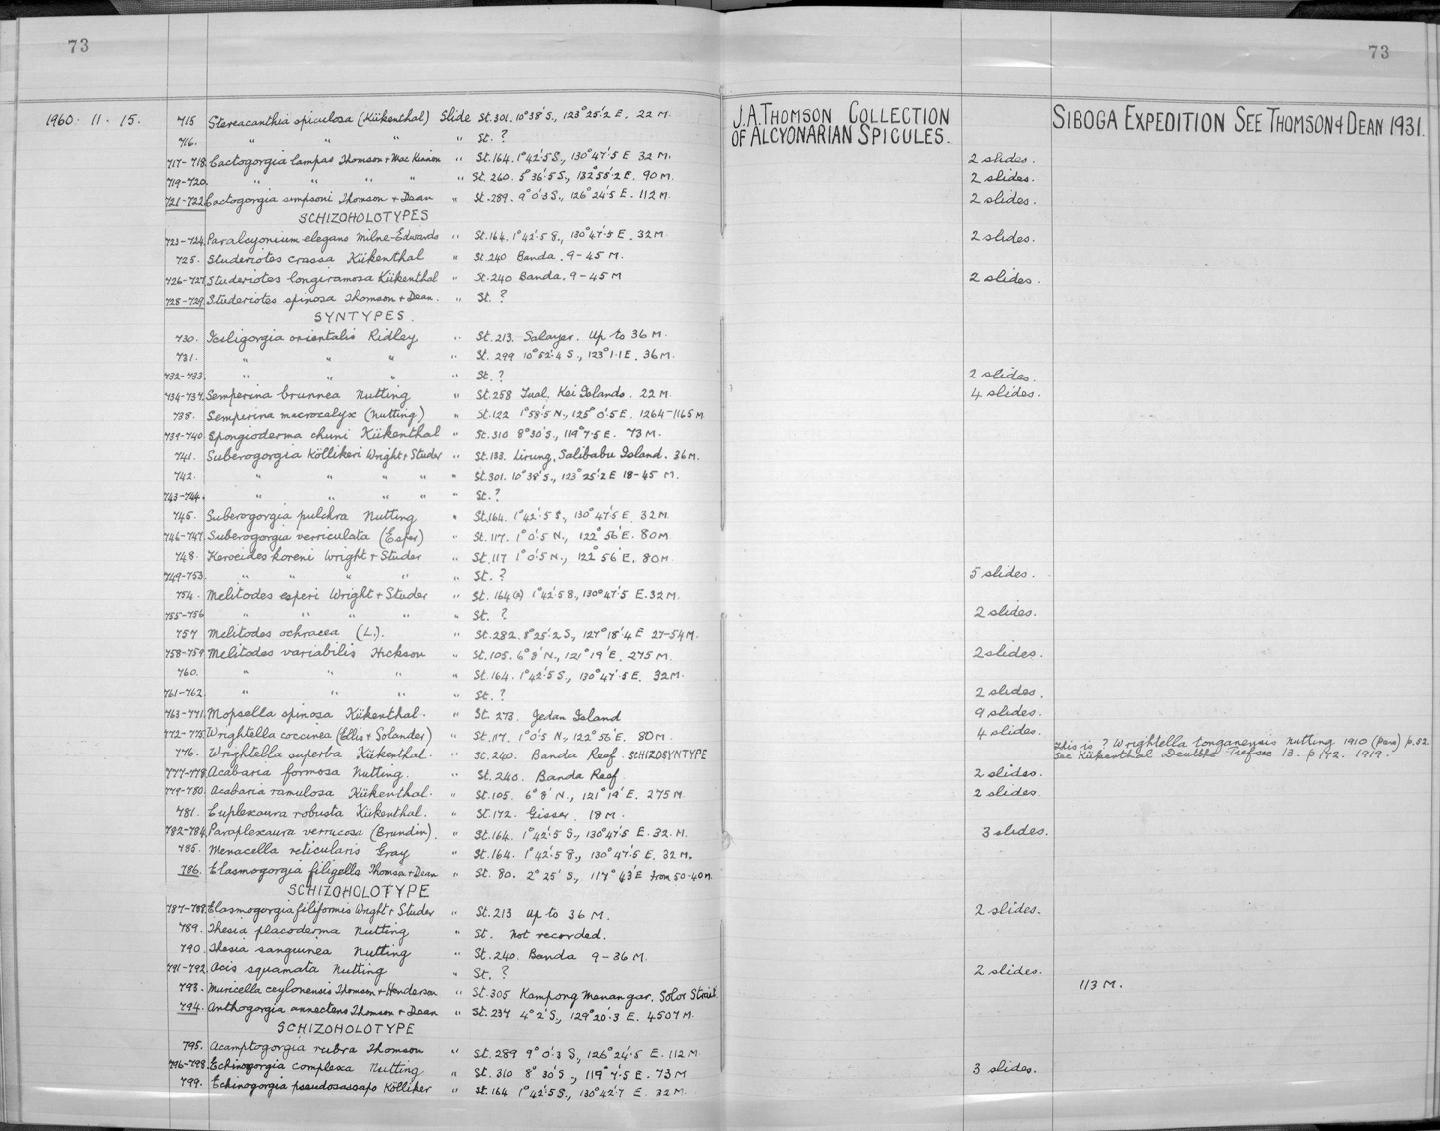 73
73
J.A. THOMSON COLLECTION OF ALCYONARIAN SPICULES.
SIBOGA EXPEDITION SEE THOMSON & DEAN 1931.
1960. 11. 15. 715 Stereacanthia spiculosa (Kükenthal) Slide St. 301. 10°38'S., 123°25'.2 E. 22 M.
716. " " " " St. ?
717-718. Cactogorgia lampas Thomson & Mac Kinnon " St. 164. 1°42'.5 S., 130°47'.5 E 32 M. 2 slides.
719-720. " " " " " St. 260. 5°36'.5 S., 132°55'.2 E. 90 M. 2 slides.
721-722 Cactogorgia simpsoni Thomson & Dean " St. 289. 9°0'.3 S., 126°24'.5 E. 112 M. 2 slides.
SCHIZOHOLOTYPES
723-724 Paralcyonium elegans Milne-Edwards " St. 164. 1°42'.5 S., 130°47'.5 E. 32 M. 2 slides.
725. Studeriotes crassa Kükenthal " St. 240 Banda. 9-45 M.
726-727 Studeriotes longiramosa Kükenthal " St. 240 Banda. 9-45 M 2 slides.
728-729 Studeriotes spinosa Thomson & Dean. " St. ?
SYNTYPES.
730. Iciligorgia orientalis Ridley " St. 213. Salayer. Up to 36 M.
731. " " " " St. 299 10°52'.4 S., 123°1'.1 E. 36 M.
732-733. " " " " St. ? 2 slides.
734-737. Semperina brunnea Nutting " St. 258 Tual, Kei Islands. 22 M. 4 slides.
738. Semperina macrocalyx (Nutting) " St. 122 1°58'.5 N., 125°0'.5 E. 1264-1165 M
739-740 Spongioderma chuni Kükenthal " St. 310 8°30'S., 119°7'.5 E. 73 M.
741. Suberogorgia Köllikeri Wright & Studer " St. 133. Lirung, Salibabu Island. 36 M.
742. " " " " " St. 301. 10°38'S., 123°25'.2 E 18-45 M.
743-744. " " " " " St. ?
745. Suberogorgia pulchra Nutting " St. 164. 1°42'.5 S., 130°47'.5 E. 32 M
746-747. Suberogorgia verriculata (Esper) " St. 117. 1°0'.5 N., 122°56'E. 80 M
748. Keroeides koreni Wright & Studer " St. 117 1°0'.5 N., 122°56'E. 80 M.
749-753. " " " " " St. ? 5 slides.
754. Melitodes esperi Wright & Studer " St. 164(a) 1°42'.5 S., 130°47'.5 E. 32 M.
755-756 " " " " " St. ? 2 slides.
757 Melitodes ochracea (L.). " St. 282. 8°25'.2 S., 127°18'.4 E 27-54 M.
758-759 Melitodes variabilis Hickson " St. 105. 6°8'N., 121°19'E. 275 M. 2 slides.
760. " " " " St. 164. 1°42'.5 S., 130°47'.5 E. 32 M.
761-762 " " " " St. ? 2 slides.
763-771. Mopsella spinosa Kükenthal. " St. 273. Jedan Island 9 slides.
772-775 Wrightella coccinea (Ellis & Solander) " St. 117. 1°0'.5 N., 122°56'E. 80 M. 4 slides.
776. Wrightella superba Kükenthal. " St. 240. Banda Reef. SCHIZOSYNTYPE This is ? Wrightella tonganensis Nutting 1910 (pars) p. 52.
See Kükenthal Deutsche Tiefsee 13. p 172. 1919.
777-778 Acabaria formosa Nutting. " St. 240. Banda Reef. 2 slides.
779-780. Acabaria ramulosa Kükenthal. " St. 105. 6°8'N., 121°19'E. 275 M. 2 slides.
781. Euplexaura robusta Kükenthal. " St. 172. Gisser. 18 M.
782-784 Paraplexaura verrucosa (Brundin). " St. 164. 1°42'.5 S., 130°47'.5 E. 32. M. 3 slides.
785. Menacella reticularis Gray " St. 164. 1°42'.5 S., 130°47'.5 E. 32 M.
786. Elasmogorgia filigella Thomson & Dean " St. 80. 2°25'S., 117°43'E from 50-40 M.
SCHIZOHOLOTYPE
787-788. Elasmogorgia filiformis Wright & Studer " St. 213 up to 36 M. 2 slides.
789. Thesia placoderma Nutting " St. Not recorded.
790. Thesia sanguinea Nutting " St. 240. Banda 9-36 M.
791-792. Acis squamata Nutting " St. ? 2 slides.
793. Muricella ceylonensis Thomson & Henderson " St. 305 Kampong Menangar. Solor Strait. 113 M.
794. Anthogorgia annectens Thomson & Dean " St. 237 4°2'S., 129°20'.3 E. 4507 M.
SCHIZOHOLOTYPE
795. Acamptogorgia rubra Thomson " St. 289 9°0'.3 S., 126°24'.5 E. 112 M.
796-798. Echinogorgia complexa Nutting " St. 310 8°30'S., 119°7'.5 E. 73 M 3 slides.
799. Echinogorgia pseudosassapo Kölliker " St. 164 1°42'.5 S., 130°42'.7 E. 32 M.